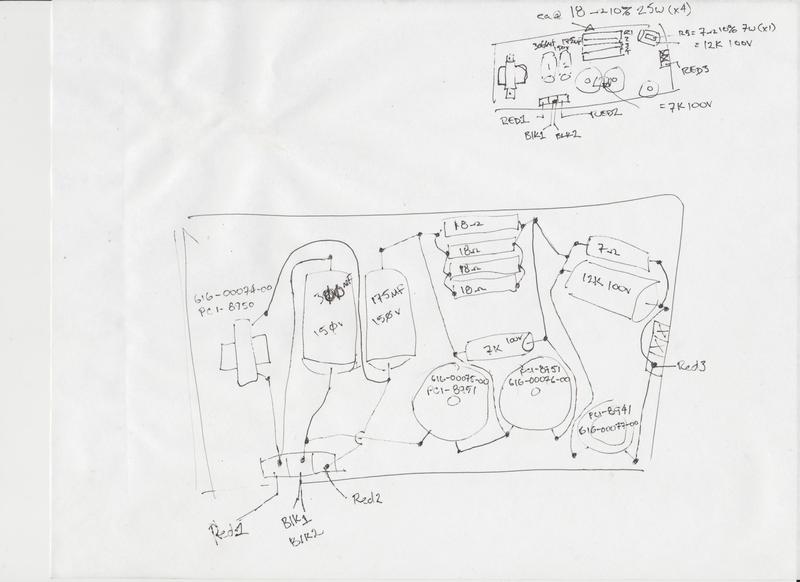 ea @ 18 Ω ±10% 25W (x4)
R5 = 7Ω 10% 7W (x1)
= 12K 100V
RED3
= 7K 100V
RED1
RED2
Blk1
BLK2
R1
2
3
4
18Ω
18Ω
18Ω
18Ω
7Ω
12K 100V
616-00074-00
PC1-8750
MF
150V
175MF
150V
7K 100V
616-00075-00
PC1-8751
PC1-8751
616-00076-00
PC1-8941
616-00077-00
Red3
Red1
Blk1
Blk2
Red2